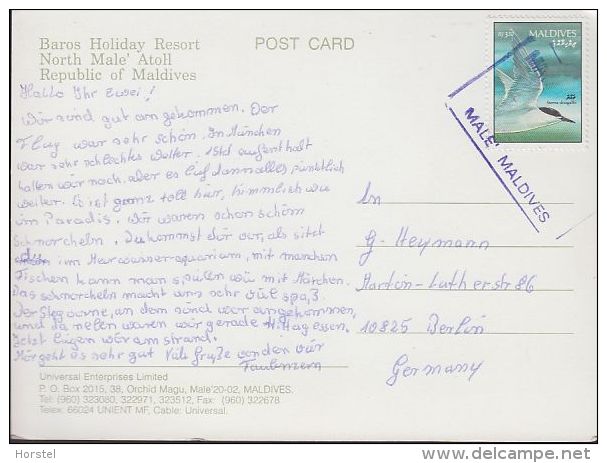 Baros Holiday Resort
North Male' Atoll
Republic of Maldives
POST CARD
MALDIVES
MALE' MALDIVES
Hallo Ihr zwei!
Wir sind gut angekommen. Der
Flug war sehr schön. In München
war sehr schlechtes Wetter. 1 Std aufenthalt
hatten wir noch. aber es lief dann alles pünktlich
weiter. Es ist ganz toll hier, himmlich wie
im Paradis. Wir waren schon schön
schnorcheln. Du kommst dir vor, als sitzt
du im Meerwasseraquarium, mit manchen
Fischen kann man spielen wie mit
Das schnorcheln macht uns sehr viel spaß.
Der Steg vorne, an dem sind wir angekommen,
und da neben waren wir gerade Mittag essen.
Jetzt liegen wir am strand.
Mir geht es sehr gut Viele Grüße von den vier
An
G. Heymann
Martin-Lutherstr 86
10825 Berlin
Germany
Universal Enterprises Limited
P. O. Box 2015, 38, Orchid Magu, Male'20-02, MALDIVES.
Tel: (960) 323080, 322971, 323512, Fax: (960) 322678
Telex: 66024 UNIENT MF, Cable: Universal.
Horstel
www.delcampe.net